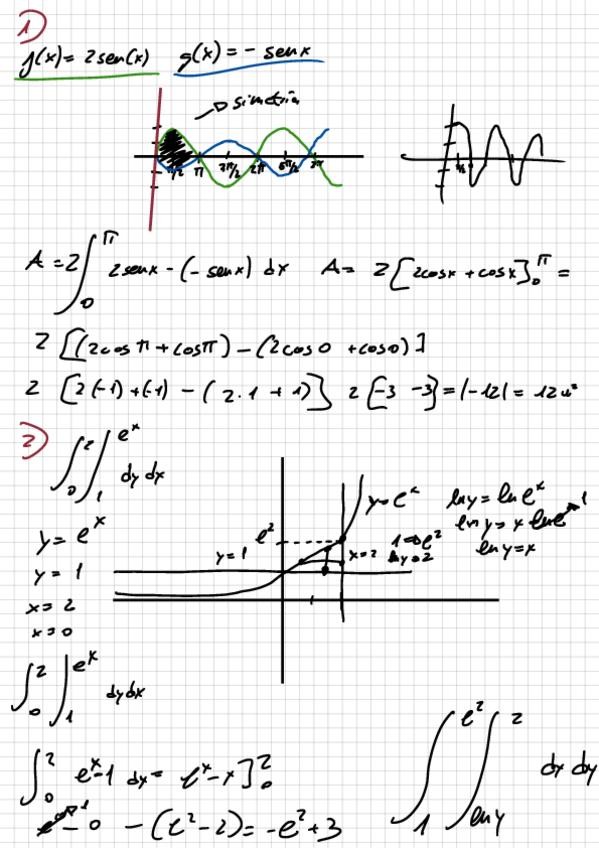 1)
f(x) = 2sen(x) g(x) = - senx
simetria
π/2 π 3π/2 2π 5π/2 3π
A = 2∫₀^π 2senx - (- senx) dx A = 2[2cosx + cosx]₀^π =
2 [(2cos π + cosπ) - (2cos 0 + cos0)]
2 [2(-1) + (-1) - (2·1 + 1)] 2[-3 -3] = |-12| = 12u²
2) ∫₀² ∫₁^(e^x) dy dx
y = e^x
y = 1
x = 2
x = 0
e² y = 1 y = e^x x = 2
lny = lne^x
lny = x lne 1
lny = x
∫₀² ∫₁^(e^x) dy dx
∫₀² e^x - 1 dx = e^x - x]₀²
- 0 - (e² - 2) = -e² + 3
∫₁^(e²) ∫_(lny)^2 dx dy